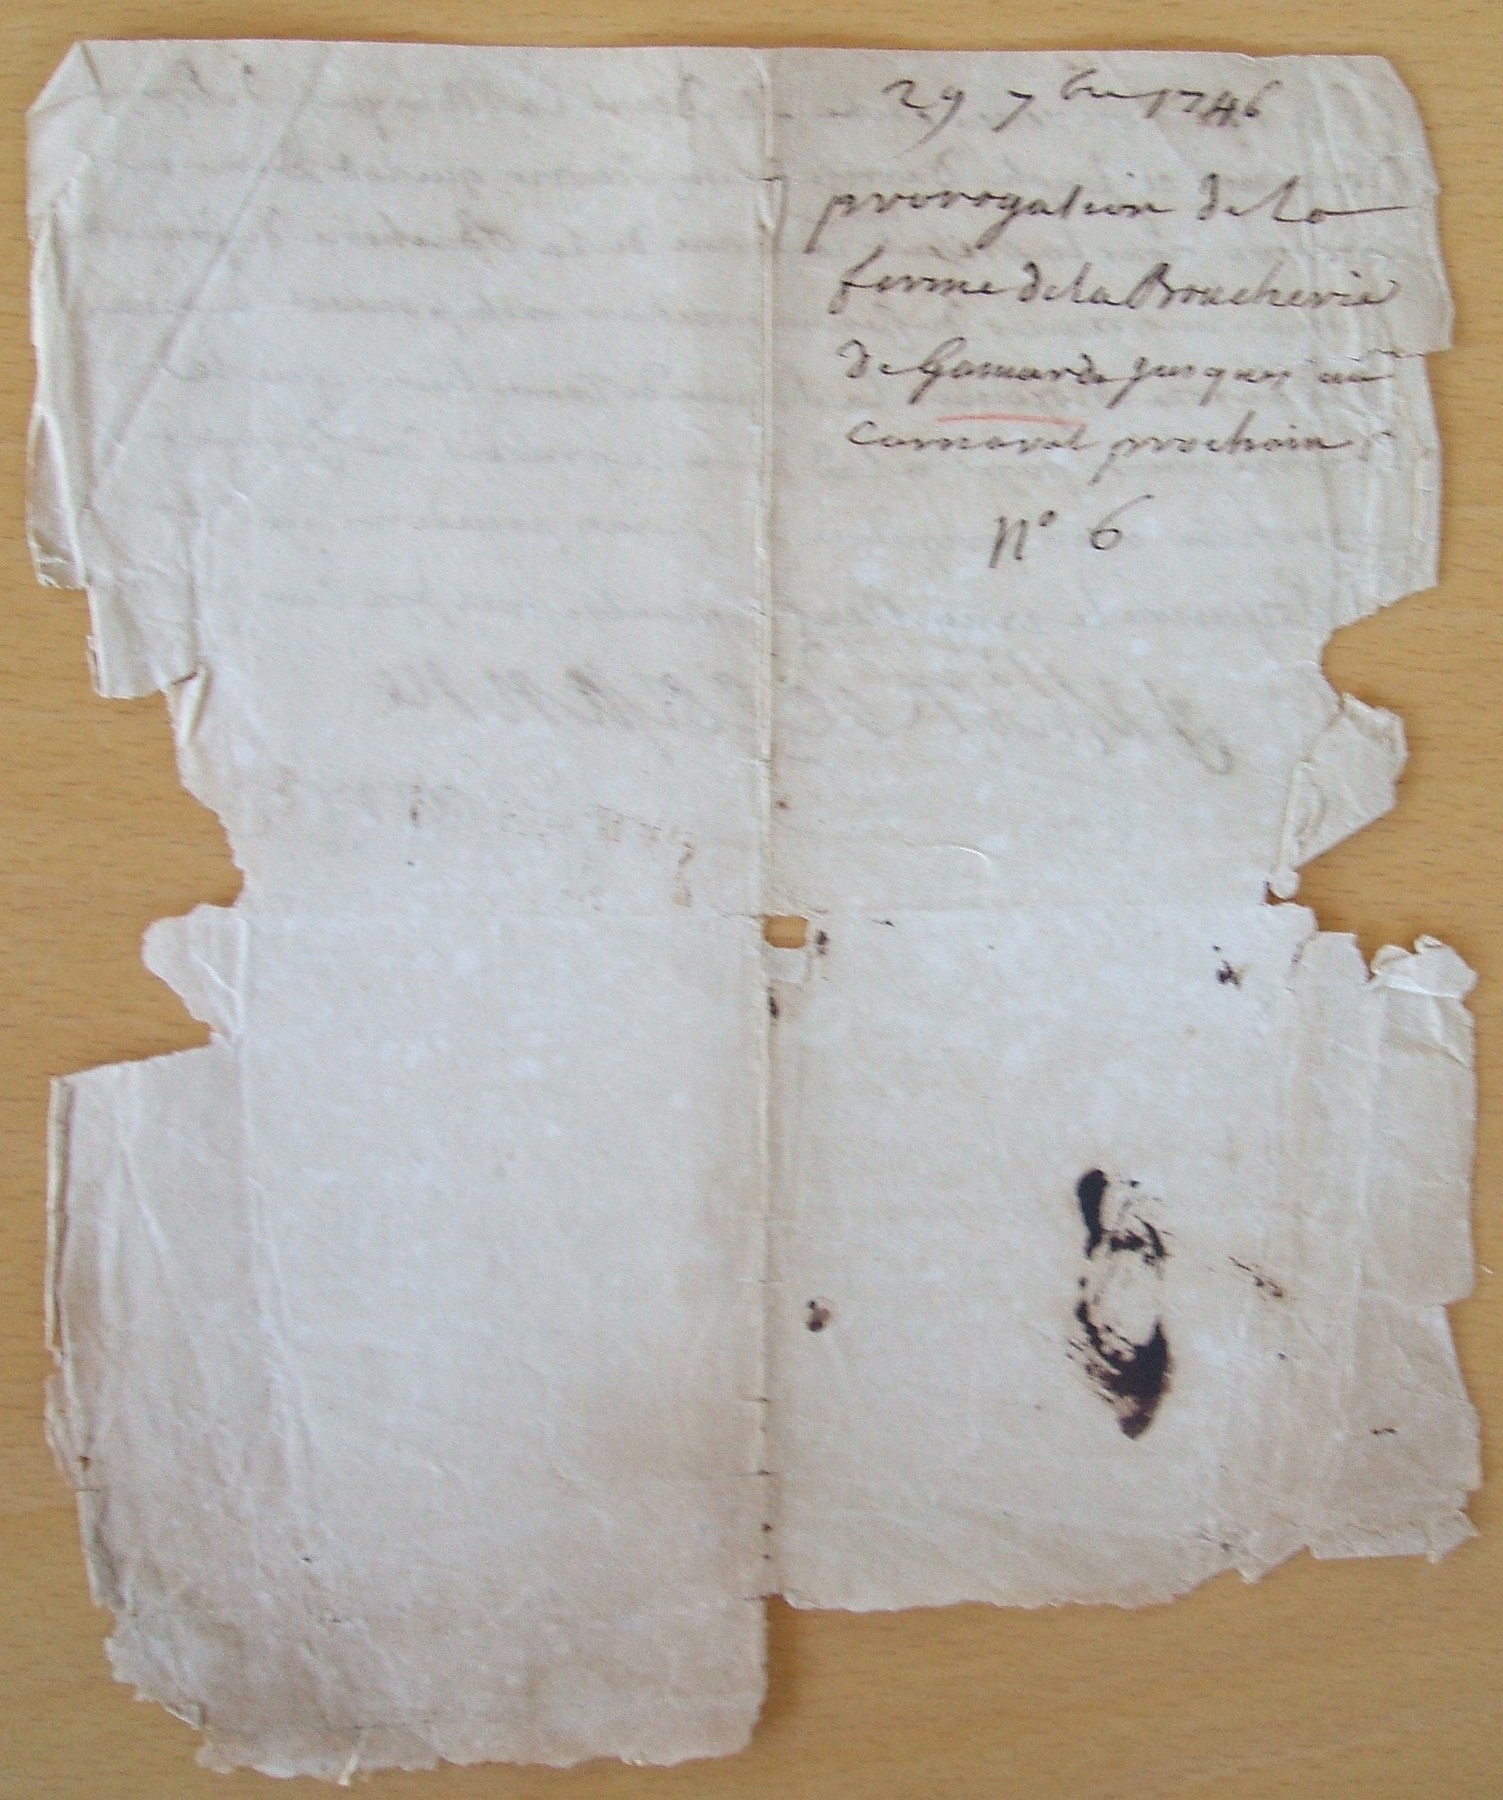 29 7bre 1746
prorogation de la
ferme de la Boucherie
de Gamarde jusques au
carnaval prochain
N° 6